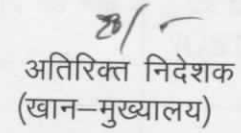 अतिरिक्त निदेशक
(खान–मुख्यालय)